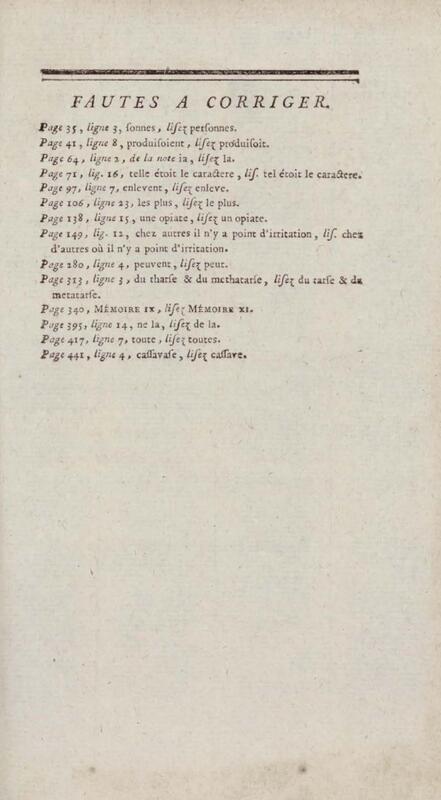 FAUTES A CORRIGER.
Page 35, ligne 3, ſonnes, liſez perſonnes.
Page 41, ligne 8, produiſoient, liſez produiſoit.
Page 64, ligne 2, de la note ia, liſez la.
Page 71, lig. 16, telle étoit le caractere, liſ. tel étoit le caractere.
Page 97, ligne 7, enlevent, liſez enleve.
Page 106, ligne 23, les plus, liſez le plus.
Page 138, ligne 15, une opiate, liſez un opiate.
Page 149, lig. 12, chez autres il n'y a point d'irritation, liſ. chez
d'autres où il n'y a point d'irritation.
Page 280, ligne 4, peuvent, liſez peut.
Page 313, ligne 3, du tharſe & du methatarſe, liſez du tarſe & du
metatarſe.
Page 340, MÉMOIRE IX, liſez MÉMOIRE XI.
Page 395, ligne 14, ne la, liſez de la.
Page 417, ligne 7, toute, liſez toutes.
Page 441, ligne 4, caſſavaſe, liſez caſſave.